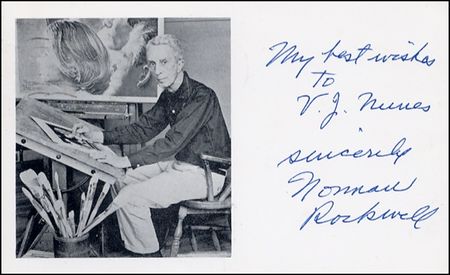 My best wishes
To
V. J. Nunes
sincerely
Norman
Rockwell